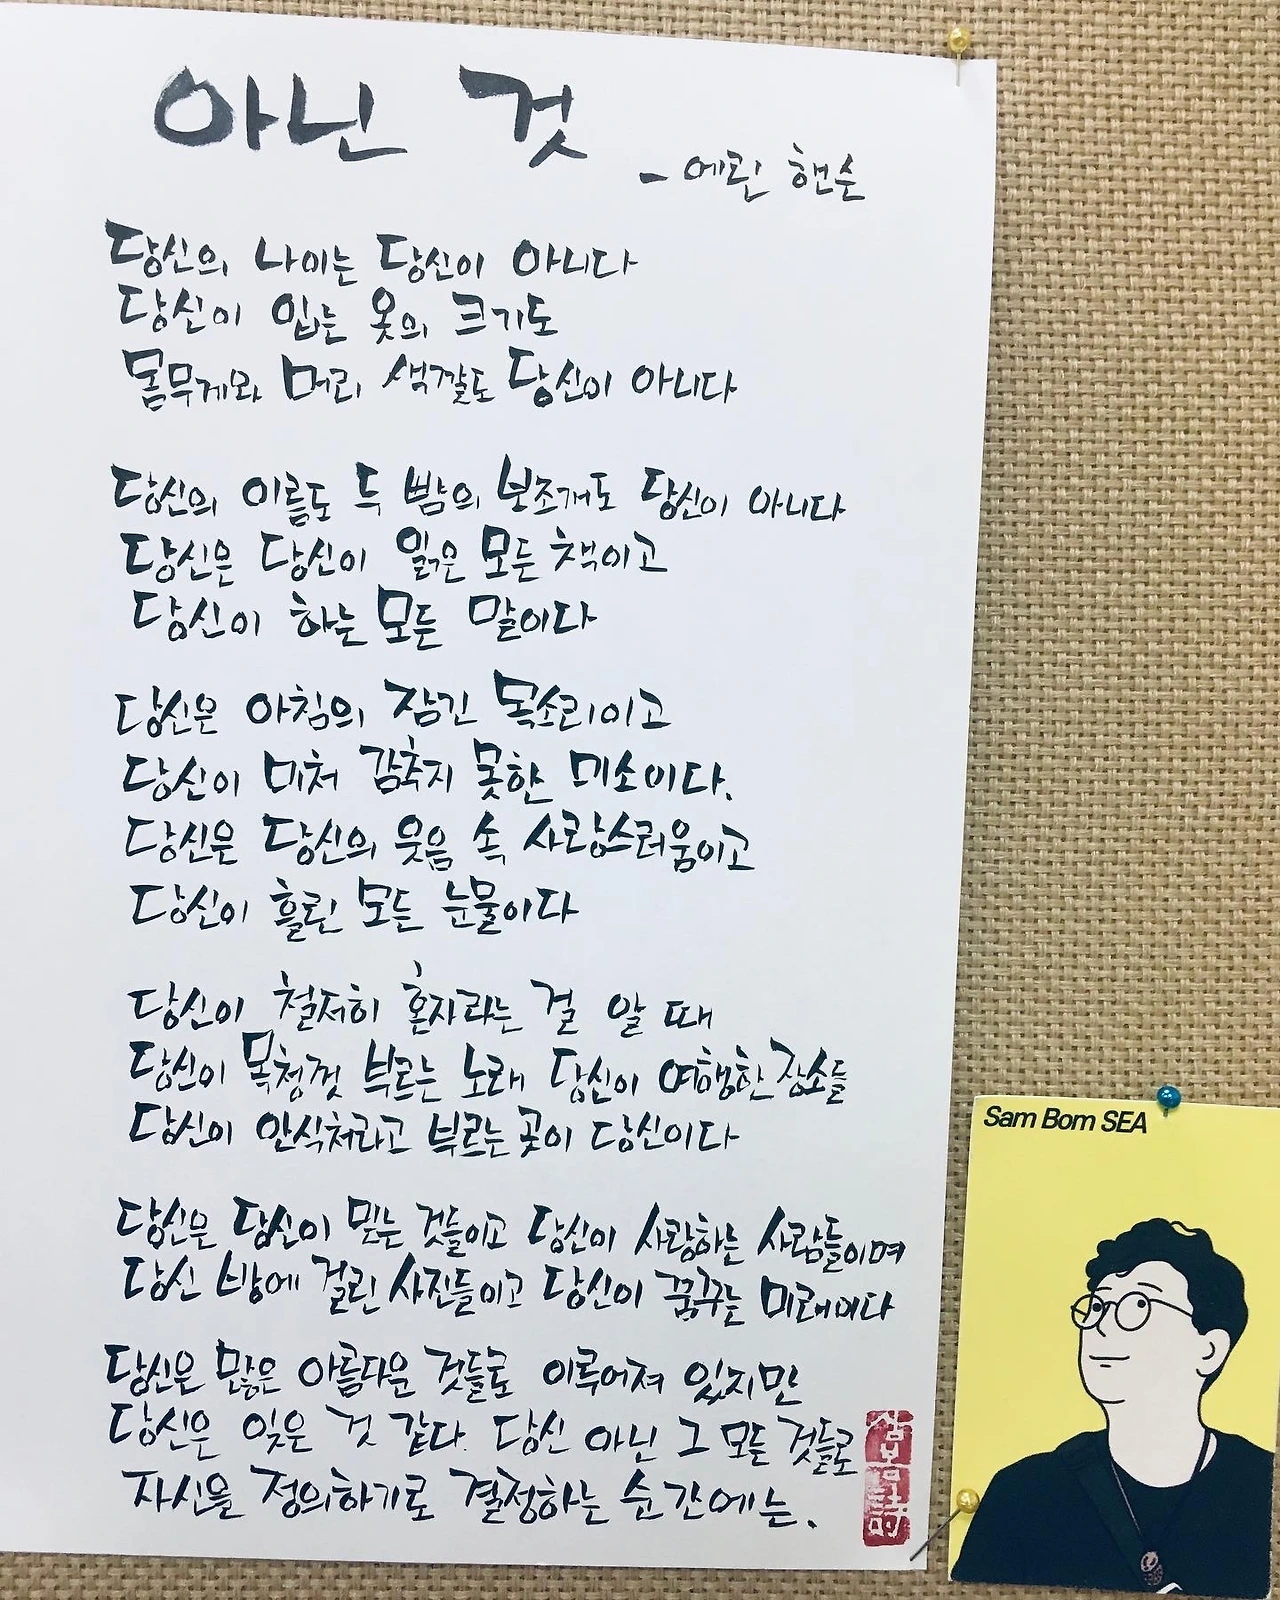 아닌 것
- 에린 핸슨
당신의 나이는 당신이 아니다
당신이 입는 옷의 크기도
몸무게와 머리 색깔도 당신이 아니다
당신의 이름도 두 뺨의 보조개도 당신이 아니다
당신은 당신이 읽은 모든 책이고
당신이 하는 모든 말이다
당신은 아침의 잠긴 목소리이고
당신이 미처 감추지 못한 미소이다.
당신은 당신의 웃음 속 사랑스러움이고
당신이 흘린 모든 눈물이다
당신이 철저히 혼자라는 걸 알 때
당신이 목청껏 부르는 노래 당신이 여행한 장소들
당신이 안식처라고 부르는 곳이 당신이다
당신은 당신이 믿는 것들이고 당신이 사랑하는 사람들이며
당신 방에 걸린 사진들이고 당신이 꿈꾸는 미래이다
당신은 많은 아름다운 것들로 이루어져 있지만
당신은 잊은 것 같다. 당신 아닌 그 모든 것들로
자신을 정의하기로 결정하는 순간에는.
삼봄詩
Sam Bom SEA